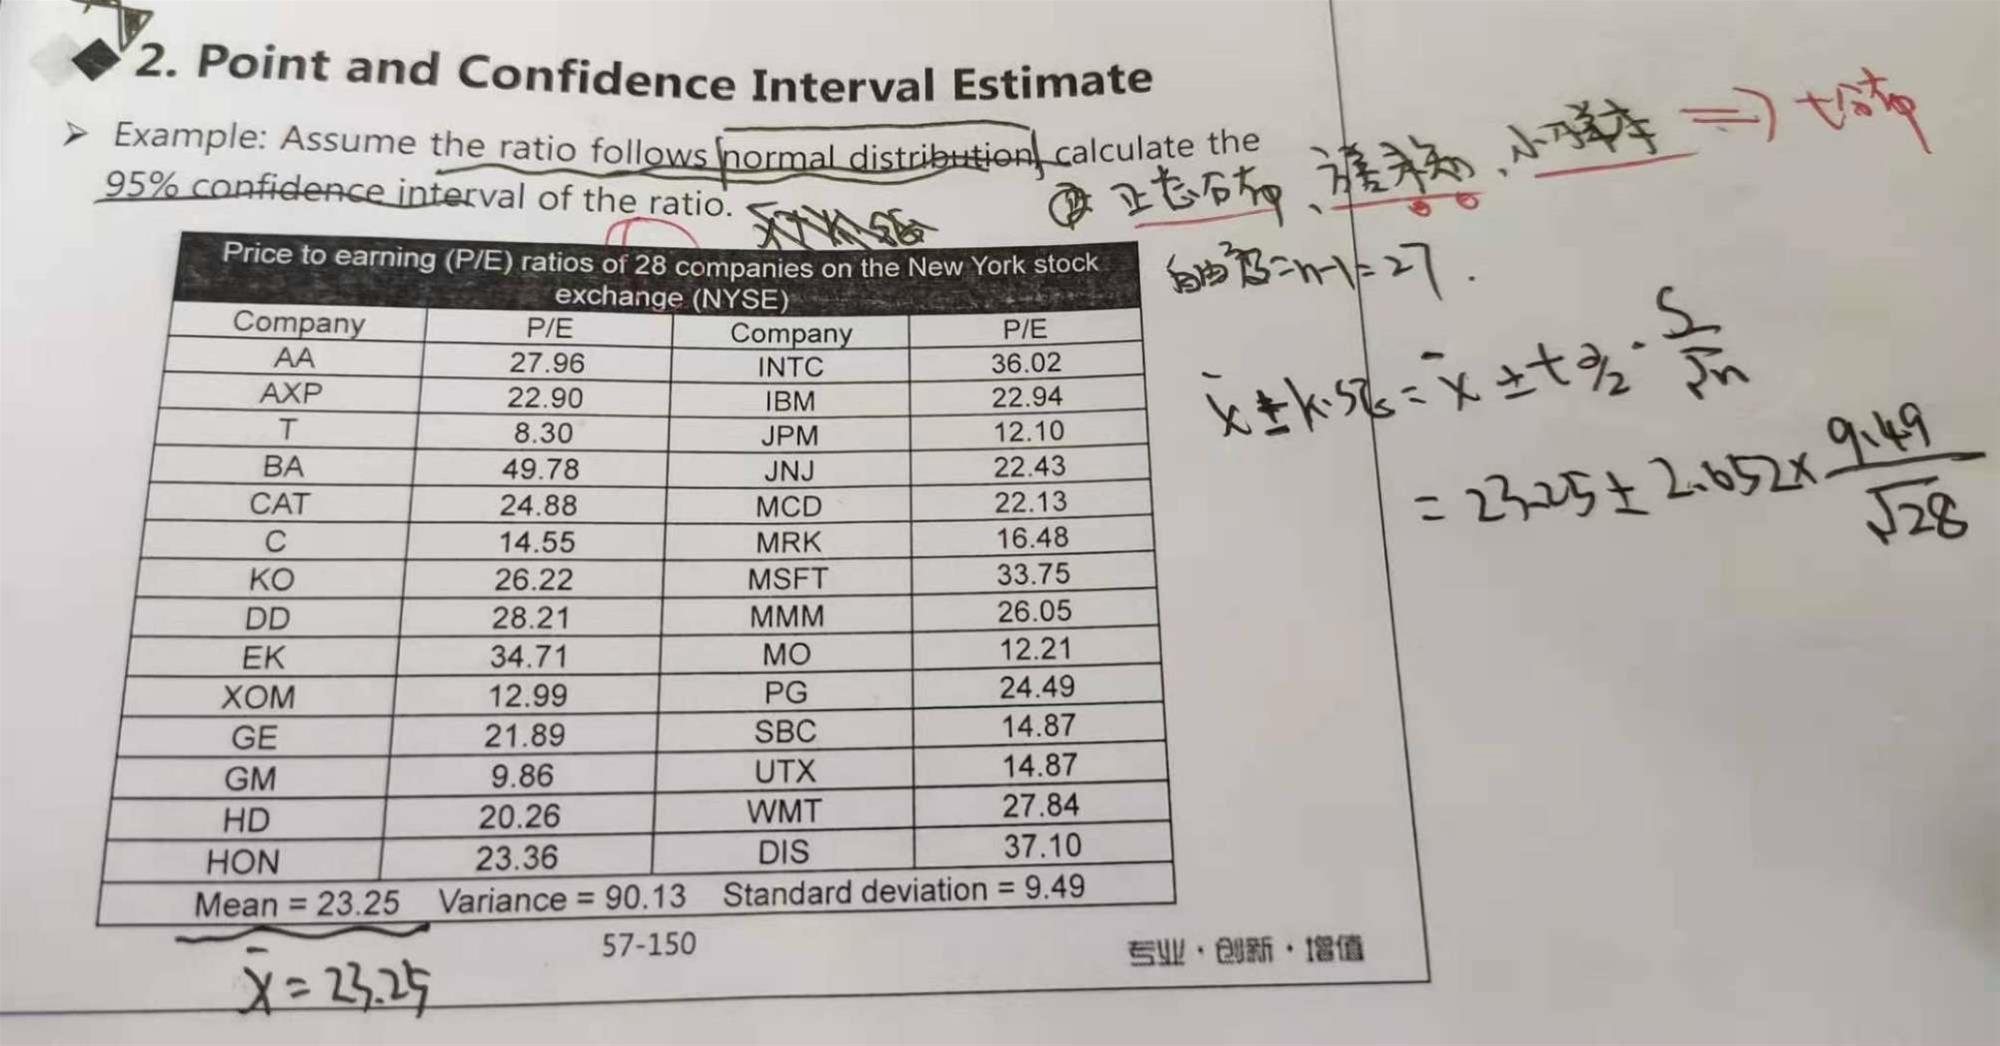 2. Point and Confidence Interval Estimate
➤ Example: Assume the ratio follows normal distribution, calculate the
95% confidence interval of the ratio.
② 正态分布、方差未知、小样本 => t分布
自由度=n-1=27.
x̄ ± k·
= x̄ ± t α/2 · S/√n
= 23.25 ± 2.052 × 9.49/√28
Price to earning (P/E) ratios of 28 companies on the New York stock
exchange (NYSE)
Company P/E Company P/E
AA 27.96 INTC 36.02
AXP 22.90 IBM 22.94
T 8.30 JPM 12.10
BA 49.78 JNJ 22.43
CAT 24.88 MCD 22.13
C 14.55 MRK 16.48
KO 26.22 MSFT 33.75
DD 28.21 MMM 26.05
EK 34.71 MO 12.21
XOM 12.99 PG 24.49
GE 21.89 SBC 14.87
GM 9.86 UTX 14.87
HD 20.26 WMT 27.84
HON 23.36 DIS 37.10
Mean = 23.25 Variance = 90.13 Standard deviation = 9.49
x̄ = 23.25
57-150
专业·创新·增值